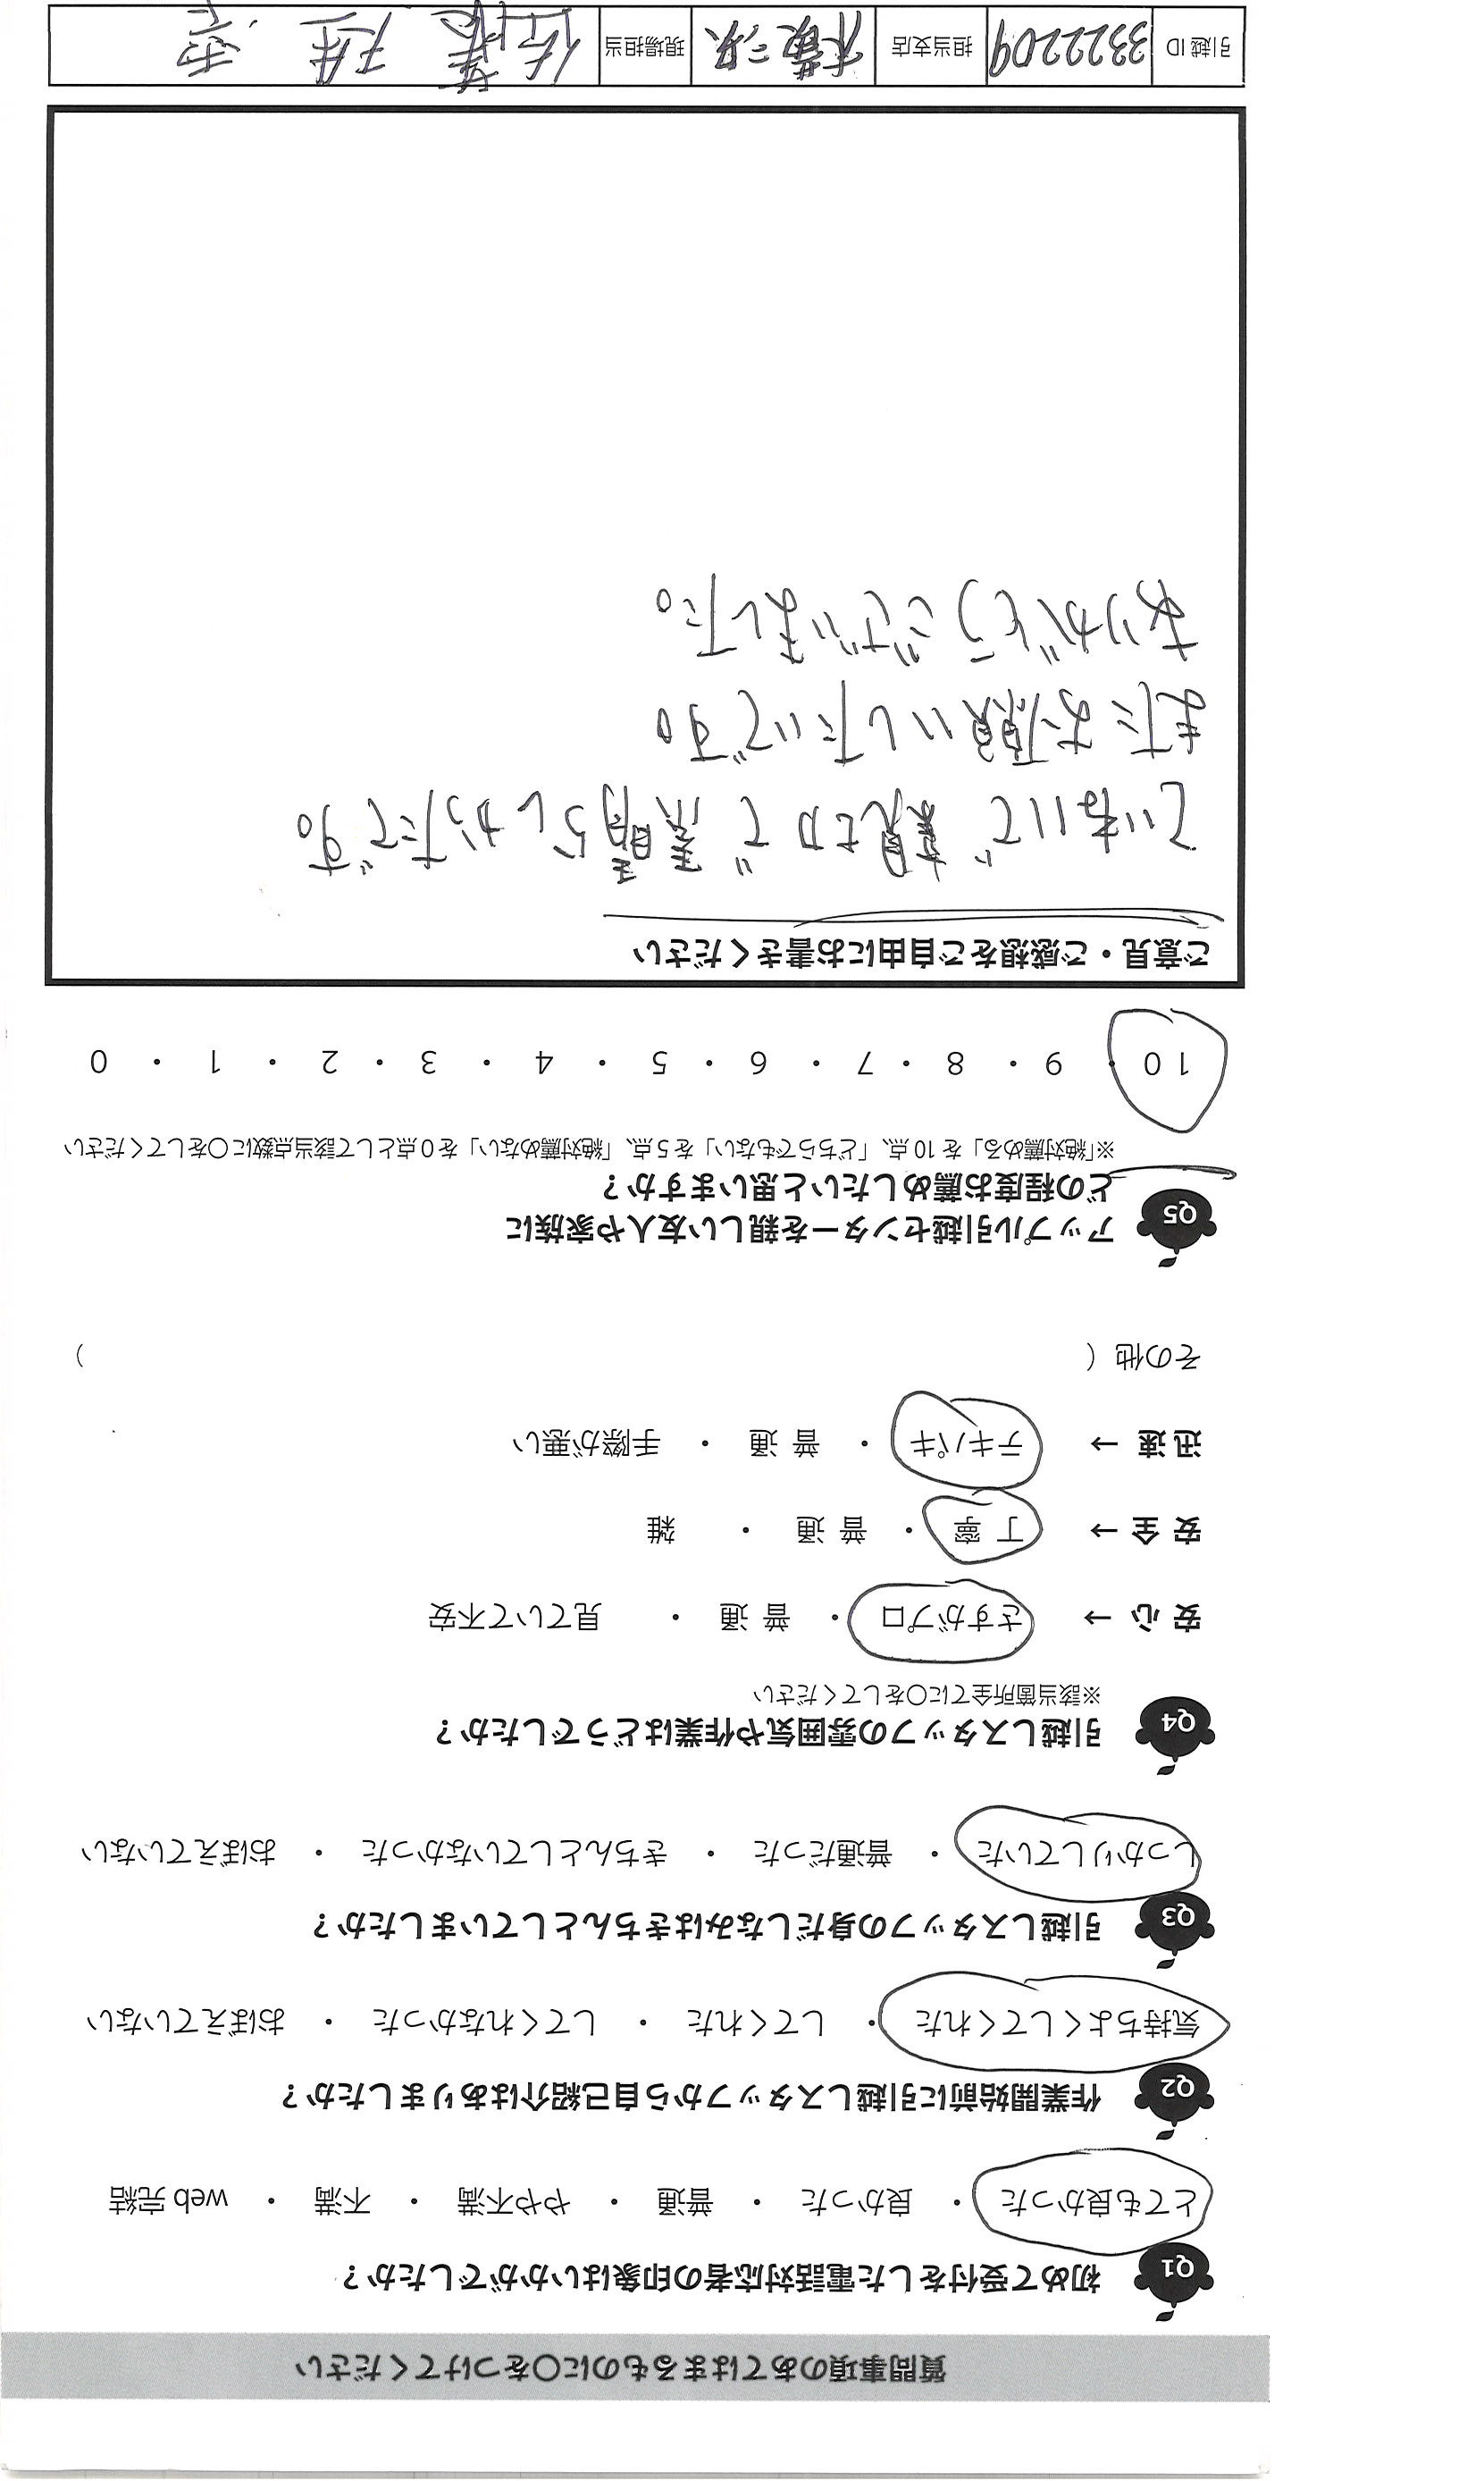 質問事項のあてはまるものに〇をつけてください
Q1 初めて受付をした電話対応者の印象はいかがでしたか？
とても良かった ・ 良かった ・ 普通 ・ やや不満 ・ 不満 ・ web 完結
Q2 作業開始前に引越しスタッフから自己紹介はありましたか？
気持ちよくしてくれた ・ してくれた ・ してくれなかった ・ おぼえていない
Q3 引越しスタッフの身だしなみはきちんとしていましたか？
しっかりしていた ・ 普通だった ・ きちんとしていなかった ・ おぼえていない
Q4 引越しスタッフの雰囲気や作業はどうでしたか？
※該当箇所全てに〇をしてください
安 心 → さすがプロ ・ 普 通 ・ 見ていて不安
安 全 → 丁 寧 ・ 普 通 ・ 雑
迅 速 → テキパキ ・ 普 通 ・ 手際が悪い
その他（ ）
Q5 アップル引越センターを親しい友人や家族に
どの程度お薦めしたいと思いますか？
※「絶対薦める」を 10 点、「どちらでもない」を 5 点、「絶対薦めない」を 0 点として該当点数に〇をしてください
10 ・ 9 ・ 8 ・ 7 ・ 6 ・ 5 ・ 4 ・ 3 ・ 2 ・ 1 ・ 0
ご意見・ご感想をご自由にお書きください
ていねいで 親切で 素晴らしかったです。
またお願いしたいです。
ありがとうございました。
引越 ID 3322209 担当支店 現場担当 佐藤